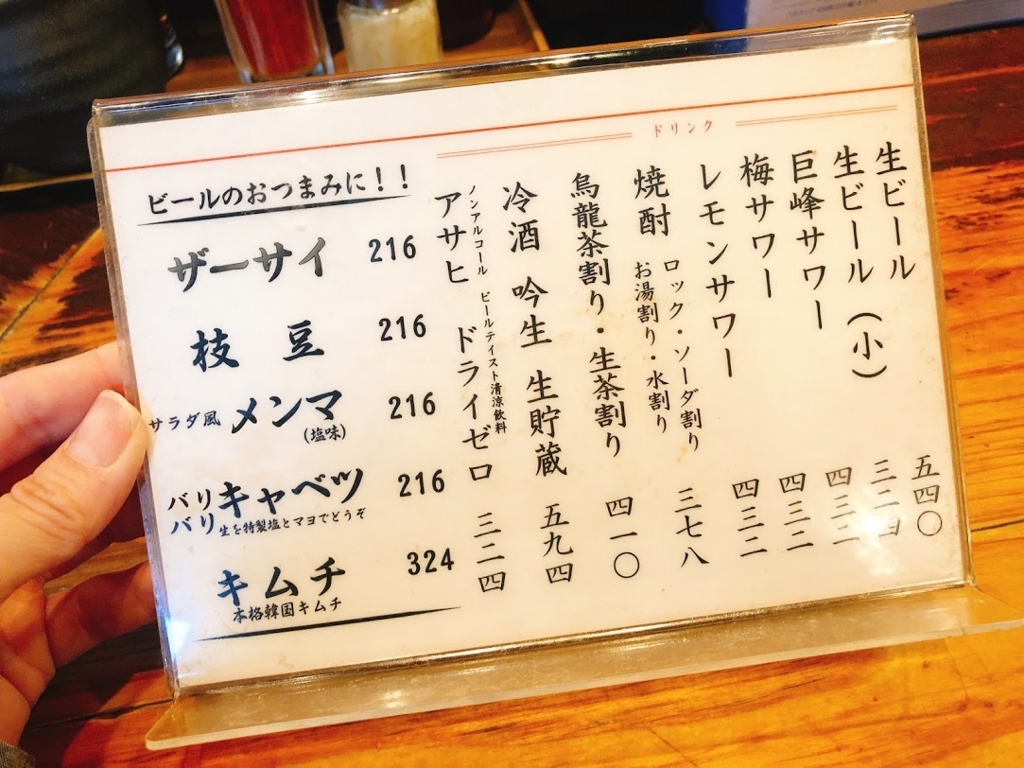 ドリンク
生ビール 五四〇
生ビール（小） 三二四
巨峰サワー 四三二
梅サワー 四三二
レモンサワー 四三二
焼酎 ロック・ソーダ割り
お湯割り・水割り 三七八
烏龍茶割り・生茶割り 四一〇
冷酒 吟生 生貯蔵 五九四
ノンアルコール ビールテイスト清涼飲料
アサヒ ドライゼロ 三二四
ビールのおつまみに！！
ザーサイ 216
枝豆 216
サラダ風 メンマ 216
(塩味)
バリバリ キャベツ 216
生を特製塩とマヨでどうぞ
キムチ 324
本格韓国キムチ